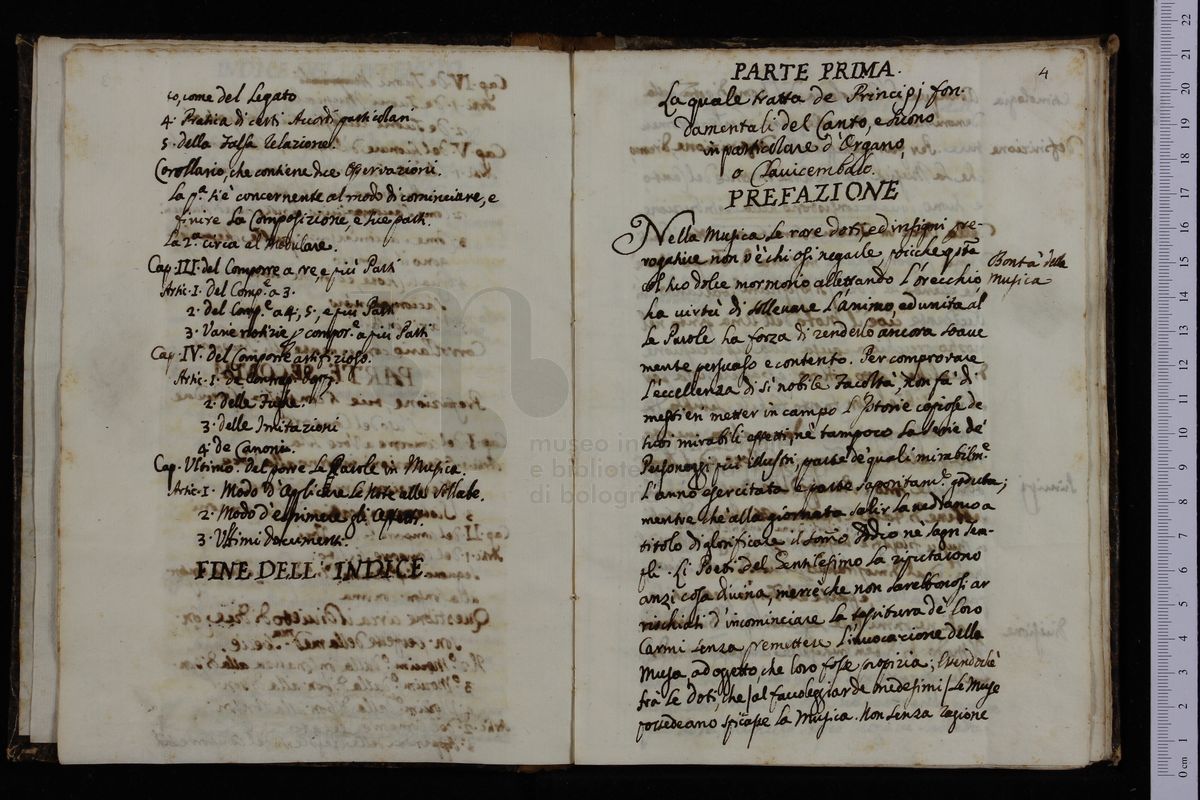 to, come del Legato
4. Pratica di certi Accordi particolari
5. della Falsa Relazione.
Corollario, che contiene dice Osservazioni.
La p.ª si è concernente al modo di cominciare, e
finire la Composizione, e sue parti.
La 2.ª circa al Modulare.
Cap. III. del Comporre a tre, e più Parti
Artic. I. del Comp.e a 3.
2. del Comp.e a 4, 5, e più Parti
3. Varie notizie p compor.e a più Parti
Cap. IV. del Comporre artifizioso.
Artic. I. de Contrap. Dopj
2. delle Fughe.
3. delle Imitazioni
4. de Canoni.
Cap. Ultimo. del porre le Parole in Musica.
Artic. I. Modo d'Applicare le Note alle Sillabe.
2. Modo d'esprimere gli Affetti.
3. Ultimi Documenti.
FINE DELL' INDICE
4
PARTE PRIMA.
La quale tratta de Principj fon-
damentali del Canto, e suono
in particolare d'Organo,
o Clavicembalo.
PREFAZIONE
Nella Musica le rare doti, ed insigni pre-
rogative non v'è chi osi negarle, poicche qsta
col suo dolce mormorio allettando l'orecchio
Bontà della
Musica
ha virtù di sollevare l'animo, ed unita al
le Parole ha forza di renderlo ancora soave
mente persuaso e contento. Per comprovare
l'eccellenza di sì nobile Facoltà, non fà di
mestieri metter in campo l'Istorie copiose de
suoi mirabili effetti, nè tampoco la serie de'
Personaggi più illustri, parte de quali mirabilm.e
l'anno esercitata e parte saporitam.e goduta;
mentre che alla giornata salir la vediamo a
titolo di glorificare il sommo Iddio nè sagri Tem-
pli. Li Poeti del Gentilesimo la riputarono
anzi cosa divina, mercè che non sarebbonosi ar
rischiati d'incominciare la tessitura dè loro
Carmi senza premettere l'invocazione della
Musa, ad oggetto, che loro fosse propizia; Essendochè
trà le doti, che /al favoleggiar de medesimi/ le Muse
possedeano spiccasse la Musica. Non senza ragione